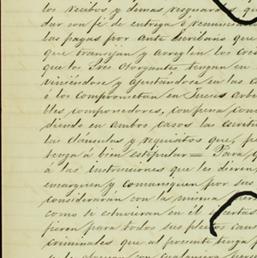 los recibos y demas resguardos, qu
dar con fé de entrega ó renuncia
las pagas por ante Escribano que
que transijan y arreglen los cré
que los Sres Otorgantes tengan en
viniéndose y ajustándose en las ca
ó los comprometan en Jueces arbi
bles componedores, con pena con
diendo en ambos casos las escritu
las cláusulas y requisitos que, p
tenga á bien estipular = Para q
á las instrucciones que les dieren
encarguen y comuniquen por sus
considerarán con la misma
como se estuvieran en él insertas
pecen para todos sus pleitos caus
criminales que al presente tenga p